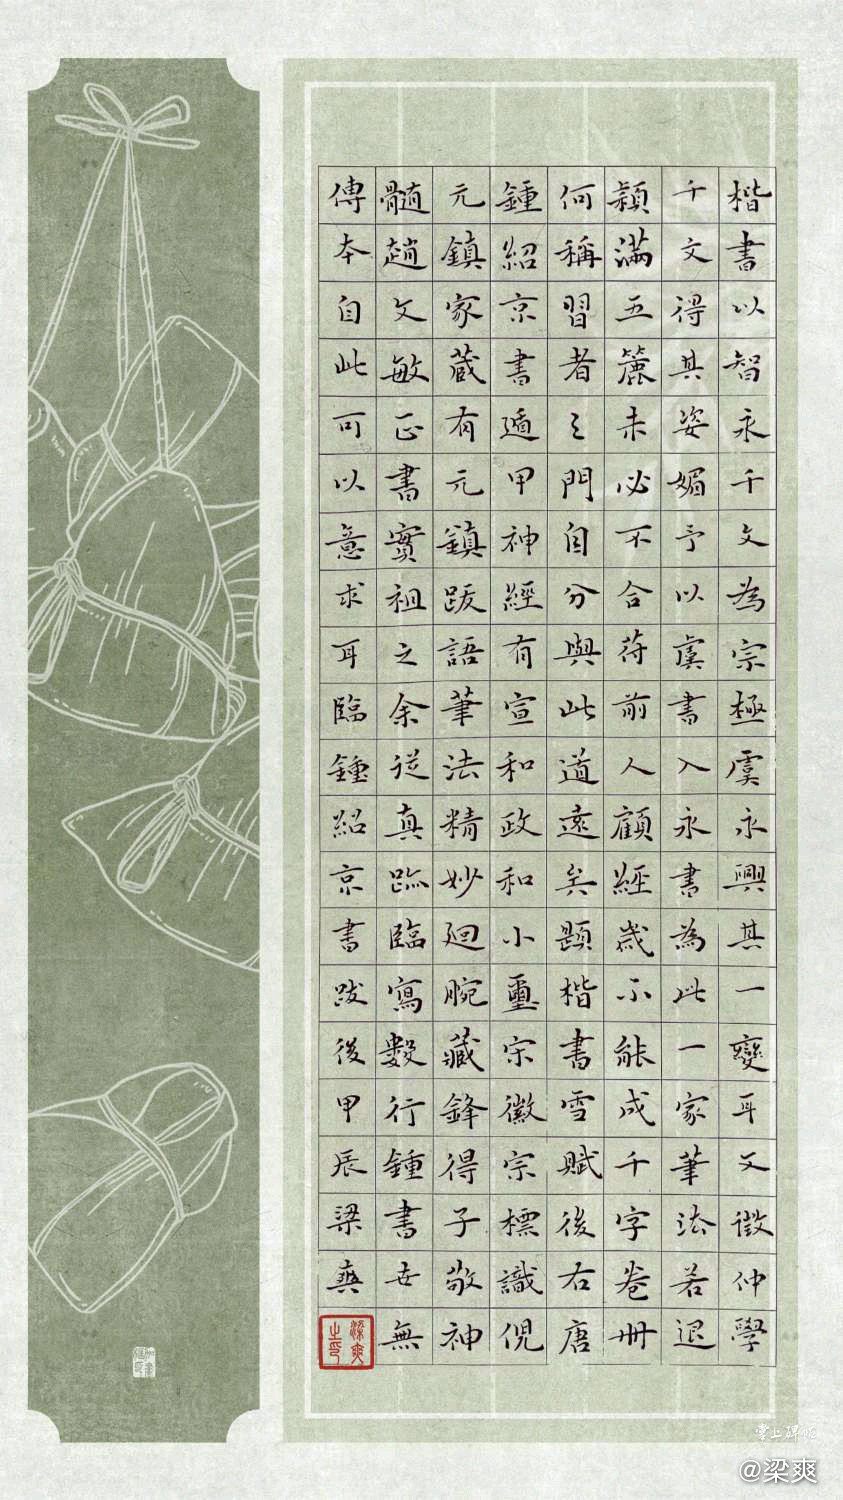 楷書以智永千文為宗極虞永興其一變耳文徵仲學
千文得其姿媚予以虞書入永書為此一家筆法若退
潁滿五簏未必不合符前人顧經歲不能成千字卷冊
何稱習者之門自分與此道遠矣題楷書雪賦後右唐
鍾紹京書遁甲神經有宣和政和小璽宋徽宗標識倪
元鎮家蔵有元鎮跋語筆法精妙廻腕藏鋒得子敬神
髓趙文敏正書實祖之余従真跡臨寫數行鍾書世無
傳本自此可以意求耳臨鍾紹京書跋後甲辰梁爽
梁爽之印
@梁爽